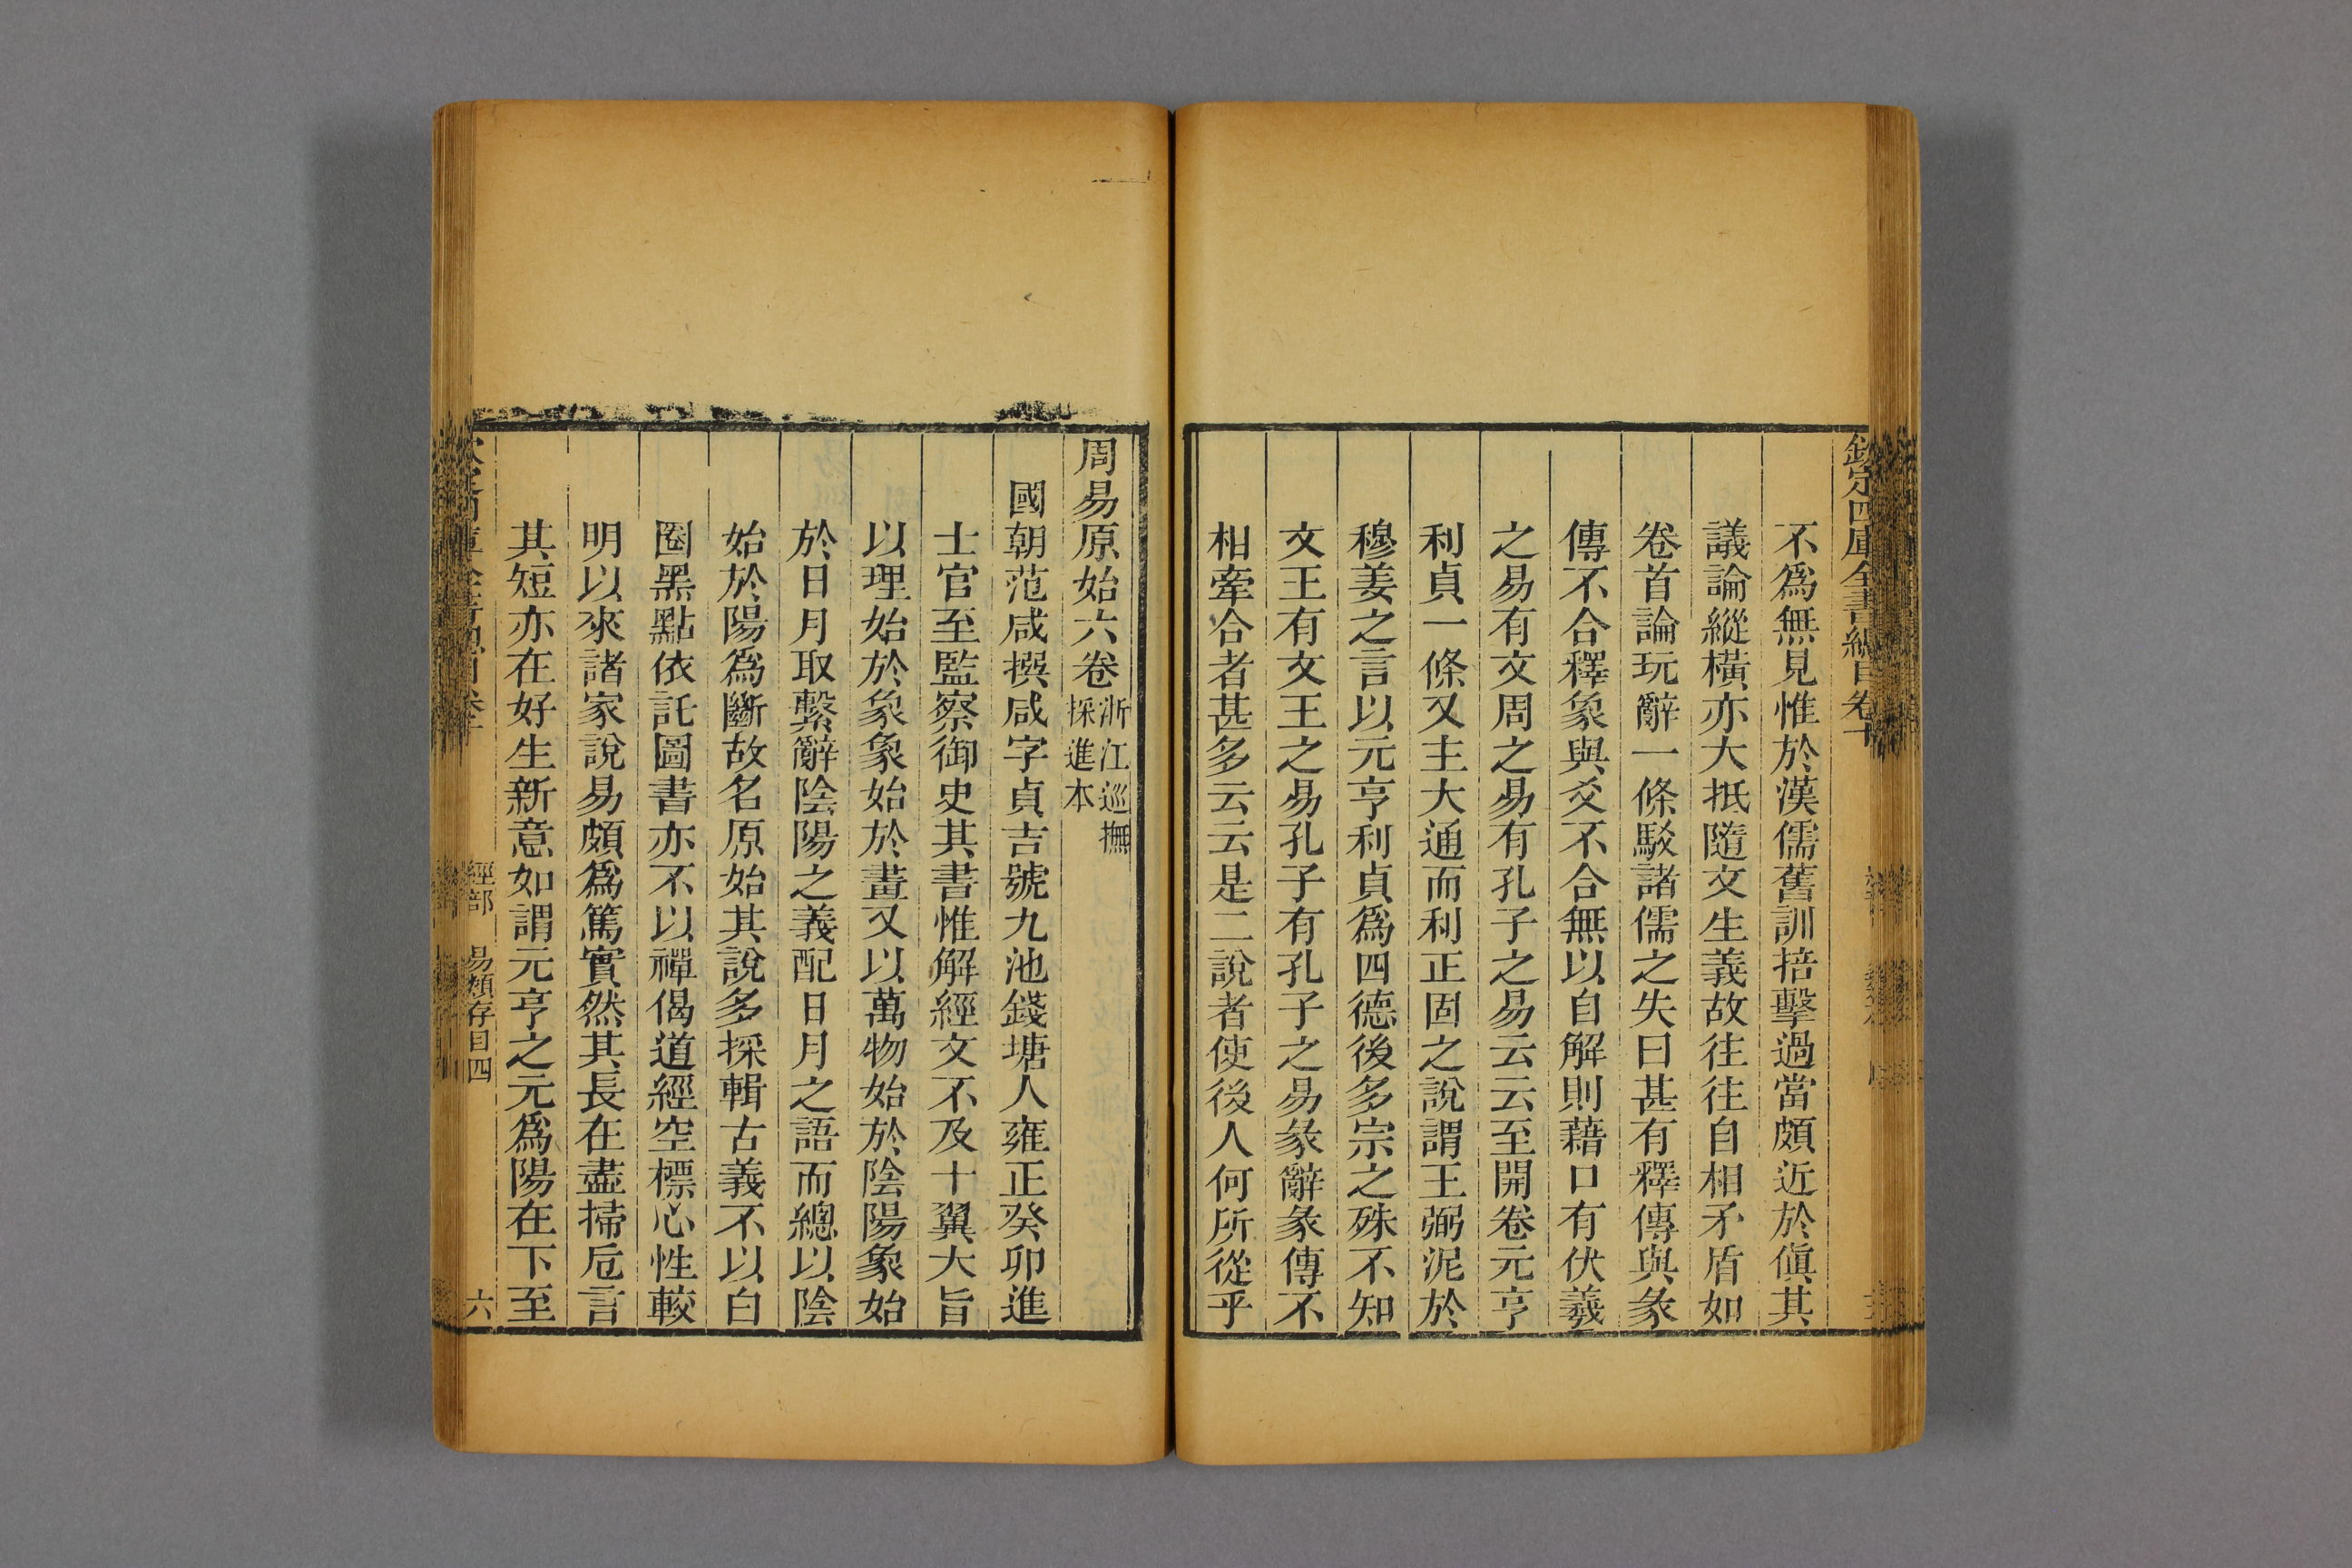 欽定四庫全書總目卷十
不爲無見惟於漢儒舊訓掊擊過當頗近於傎其
議論縱橫亦大抵隨文生義故往往自相矛盾如
卷首論玩辭一條駁諸儒之失曰甚有釋傳與彖
傳不合釋象與爻不合無以自解則藉口有伏羲
之易有文周之易有孔子之易云云至開卷元亨
利貞一條又主大通而利正固之說謂王弼泥於
穆姜之言以元亨利貞爲四德後多宗之殊不知
文王有文王之易孔子有孔子之易彖辭彖傳不
相牽合者甚多云云是二說者使後人何所從乎
周易原始六卷
浙江巡撫
採進本
國朝范咸撰咸字貞吉號九池錢塘人雍正癸卯進
士官至監察御史其書惟解經文不及十翼大旨
以理始於象象始於畫又以萬物始於陰陽象始
於日月取繫辭陰陽之義配日月之語而總以陰
始於陽爲斷故名原始其說多採輯古義不以白
圈黑點依託圖書亦不以禪偈道經空標心性較
明以來諸家說易頗爲篤實然其長在盡掃卮言
其短亦在好生新意如謂元亨之元爲陽在下至
經部 易類存目四
六